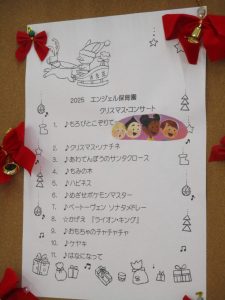 2025 エンジェル保育園
クリスマス・コンサート
1. ♪もろびとこぞりて
2. ♪クリスマス・ソナチネ
3. ♪あわてんぼうのサンタクロース
4. ♪もみの木
5. ♪ハピネス
6. ♪めざせポケモンマスター
7. ♪ベートーヴェン ソナタメドレー
8. ☆かげえ 『ライオン・キング』
9. ♪おもちゃのチャチャチャ
10. ♪ケヤキ
11. ♪はなになって